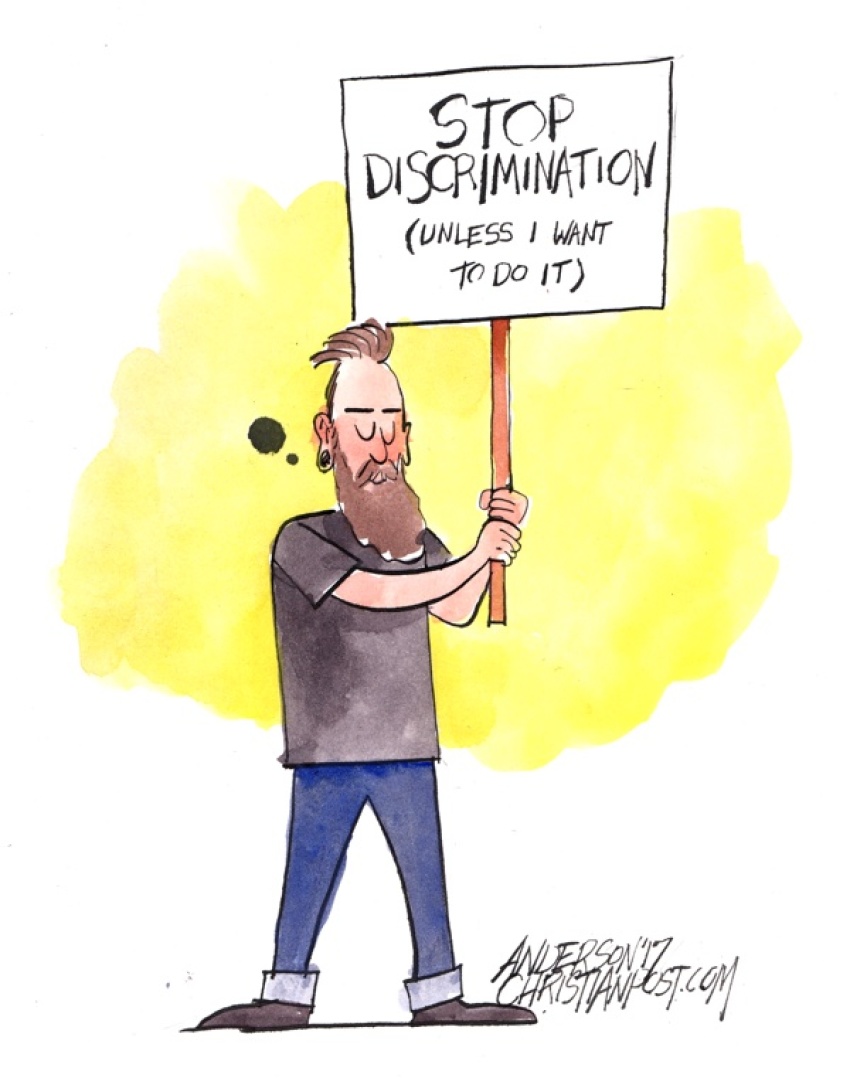 STOP
DISCRIMINATION
(UNLESS I WANT
TO DO IT)
ANDERSON '17
CHRISTIANPOST.COM